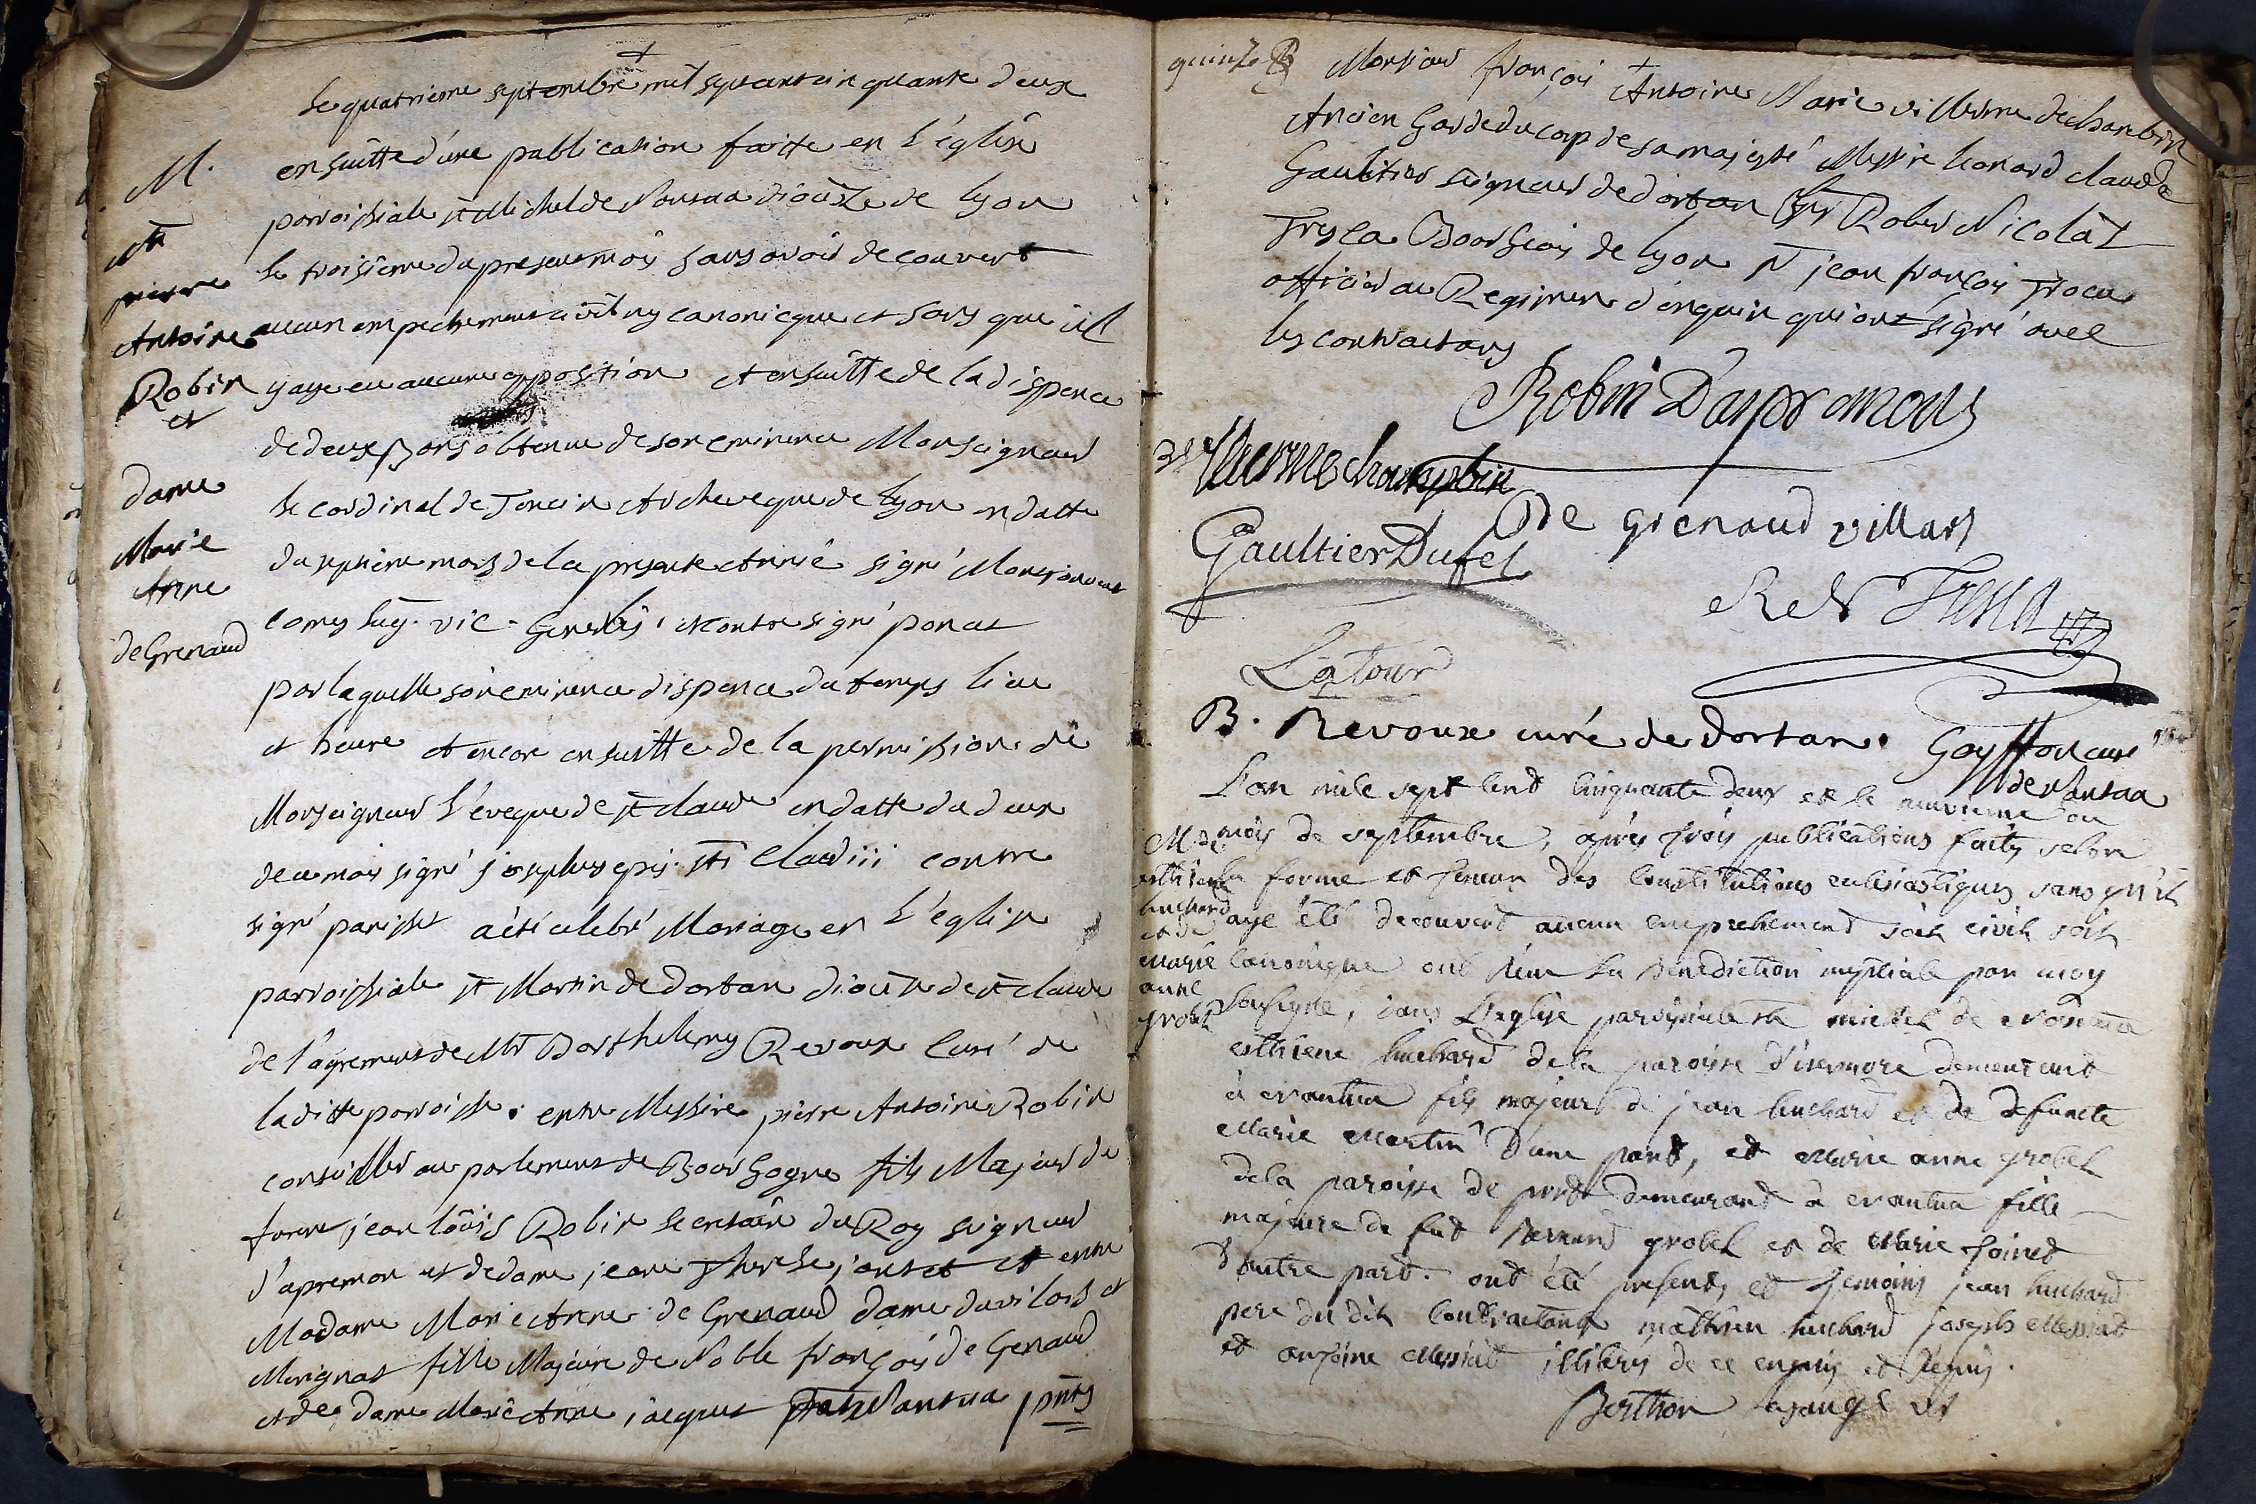 Le quatrieme septembre mil sept cent cinquante deux
ensuitte d'une publication faitte en L'église
parroissiale st Michel de Nantua diocèze de lyon
le troisième du present mois sans avoir decouvert
aucun empechement civil ny canonicque et sans que il
y aye eu aucune opposition et ensuitte de la dispence
de deux bans obtenue de son eminence Monseigneur
le cardinal de Tencin Archeveque de lyon en datte
du mars de la presente Année signé
comes lug. vic. Generalis, et contre signé ponset
par laquelle son eminence dispence du temps lieu
et heure et encore ensuitte de la permission de
Monseigneur L'eveque de st claude en datte du deux
de ce mois signé josephus epis. sti Claudii contre
signé parisset a été celebré Mariage en L'église
parroissiale st Martin de dortan diocèse de st claude
de l'agrement de Mr Barthelemy Revoux Curé de
laditte parroisse. entre Messire pierre Antoine Robin
conseiller au parlement de Bourgogne fils Majeur de
jean loüis Robin secretaire du Roy seigneur
d'apremon et de dame jeane Therese jantet et entre
Madame Marie Anne de Grenaud dame du vilars et
Marignat fille Majeure de Noble françois de Grenaud
et de dame Marie Anne jacquet Nantua pnts
M.
Mr
pierre
Antoine
Robin
et
dame
Marie
Anne
de Grenaud
quinze
Monsieur françois Antoine Marie villerme de chambin
Ancien Garde du corp de sa majesté Messire leonard claude
Gaultier seigneur de dortan Robert Nicolas
Tresca Bourgeois de lyon Sr jean françois
officier au Regiment d'enguin qui ont signé avec
les contractans
Robin D'aspremont
Villerme Champbin
De grenaud villars
Gaultier Dufel
R N Tresca
La Tour
B. Revoux curé de dortan. Goyffon curé
de Nantua
L'an mile sept cent cinquante deux et le neuvieme du
mois de septembre, après trois publications faites selon
la forme et teneur des constitutions eclesiastiques sans qu'il
aye été decouvert aucun empechement soit civil soit
canonique ont reçu la benediction nuptiale par moy
sousigné, dans L'eglise paroissiale st michel de nantua
esthiene huchard de la paroisse d'isernore demeurant
à nantua fils majeur de jean huchard et de defuncte
Marie Martin d'une part, et Marie anne probel
de la paroisse de port demeurant à nantua fille
majeure de fut Bernard probel et de Marie
d'autre part. ont été presents et temoins jean huchard
pere du dit contractant mathieu huchard joseph Messiat
et antoine Messiat illiterés de ce enquis et requis.
Berthon
M. de
esthiene
huchard
et de
marie
anne
probel